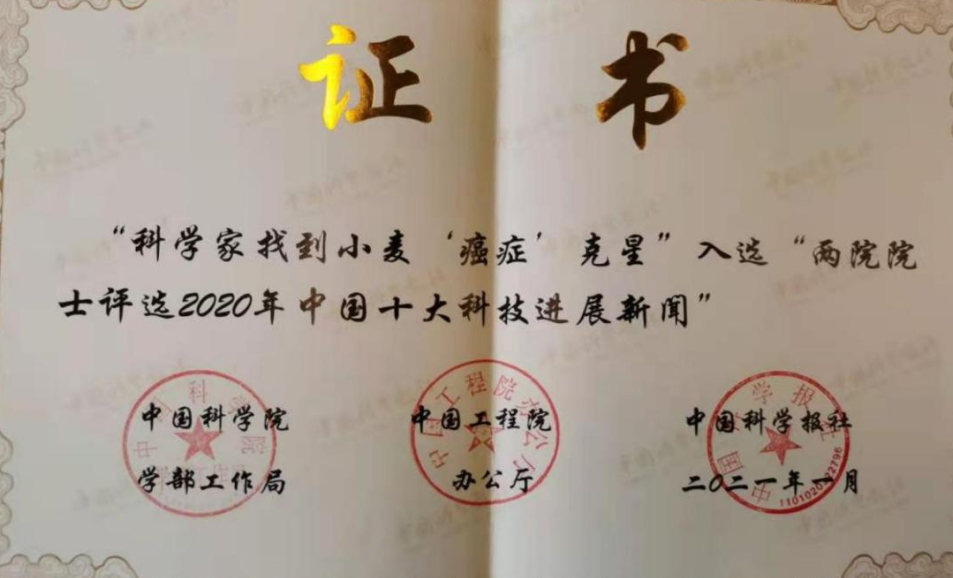 证 书
“科学家找到小麦‘癌症’克星”入选“两院院
士评选2020年中国十大科技进展新闻”
中国科学院 中国工程院 中国科学报社
学部工作局 办公厅 二〇二一年一月
中国工程院办公厅